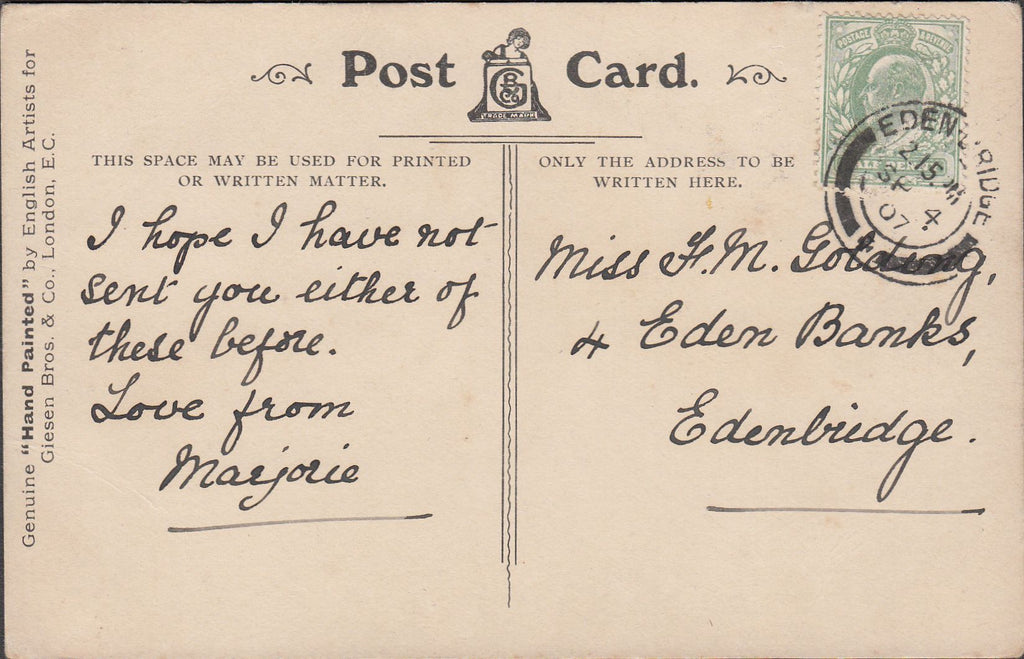 Post Card.
G B & Co
TRADE MARK
POSTAGE & REVENUE
EDENBRIDGE
2 15 PM
SP 4
07
THIS SPACE MAY BE USED FOR PRINTED
OR WRITTEN MATTER.
I hope I have not
sent you either of
these before.
Love from
Marjorie
ONLY THE ADDRESS TO BE
WRITTEN HERE.
Miss F. M. Golding,
4 Eden Banks,
Edenbridge.
Genuine "Hand Painted" by English Artists for
Giesen Bros. & Co., London, E.C.